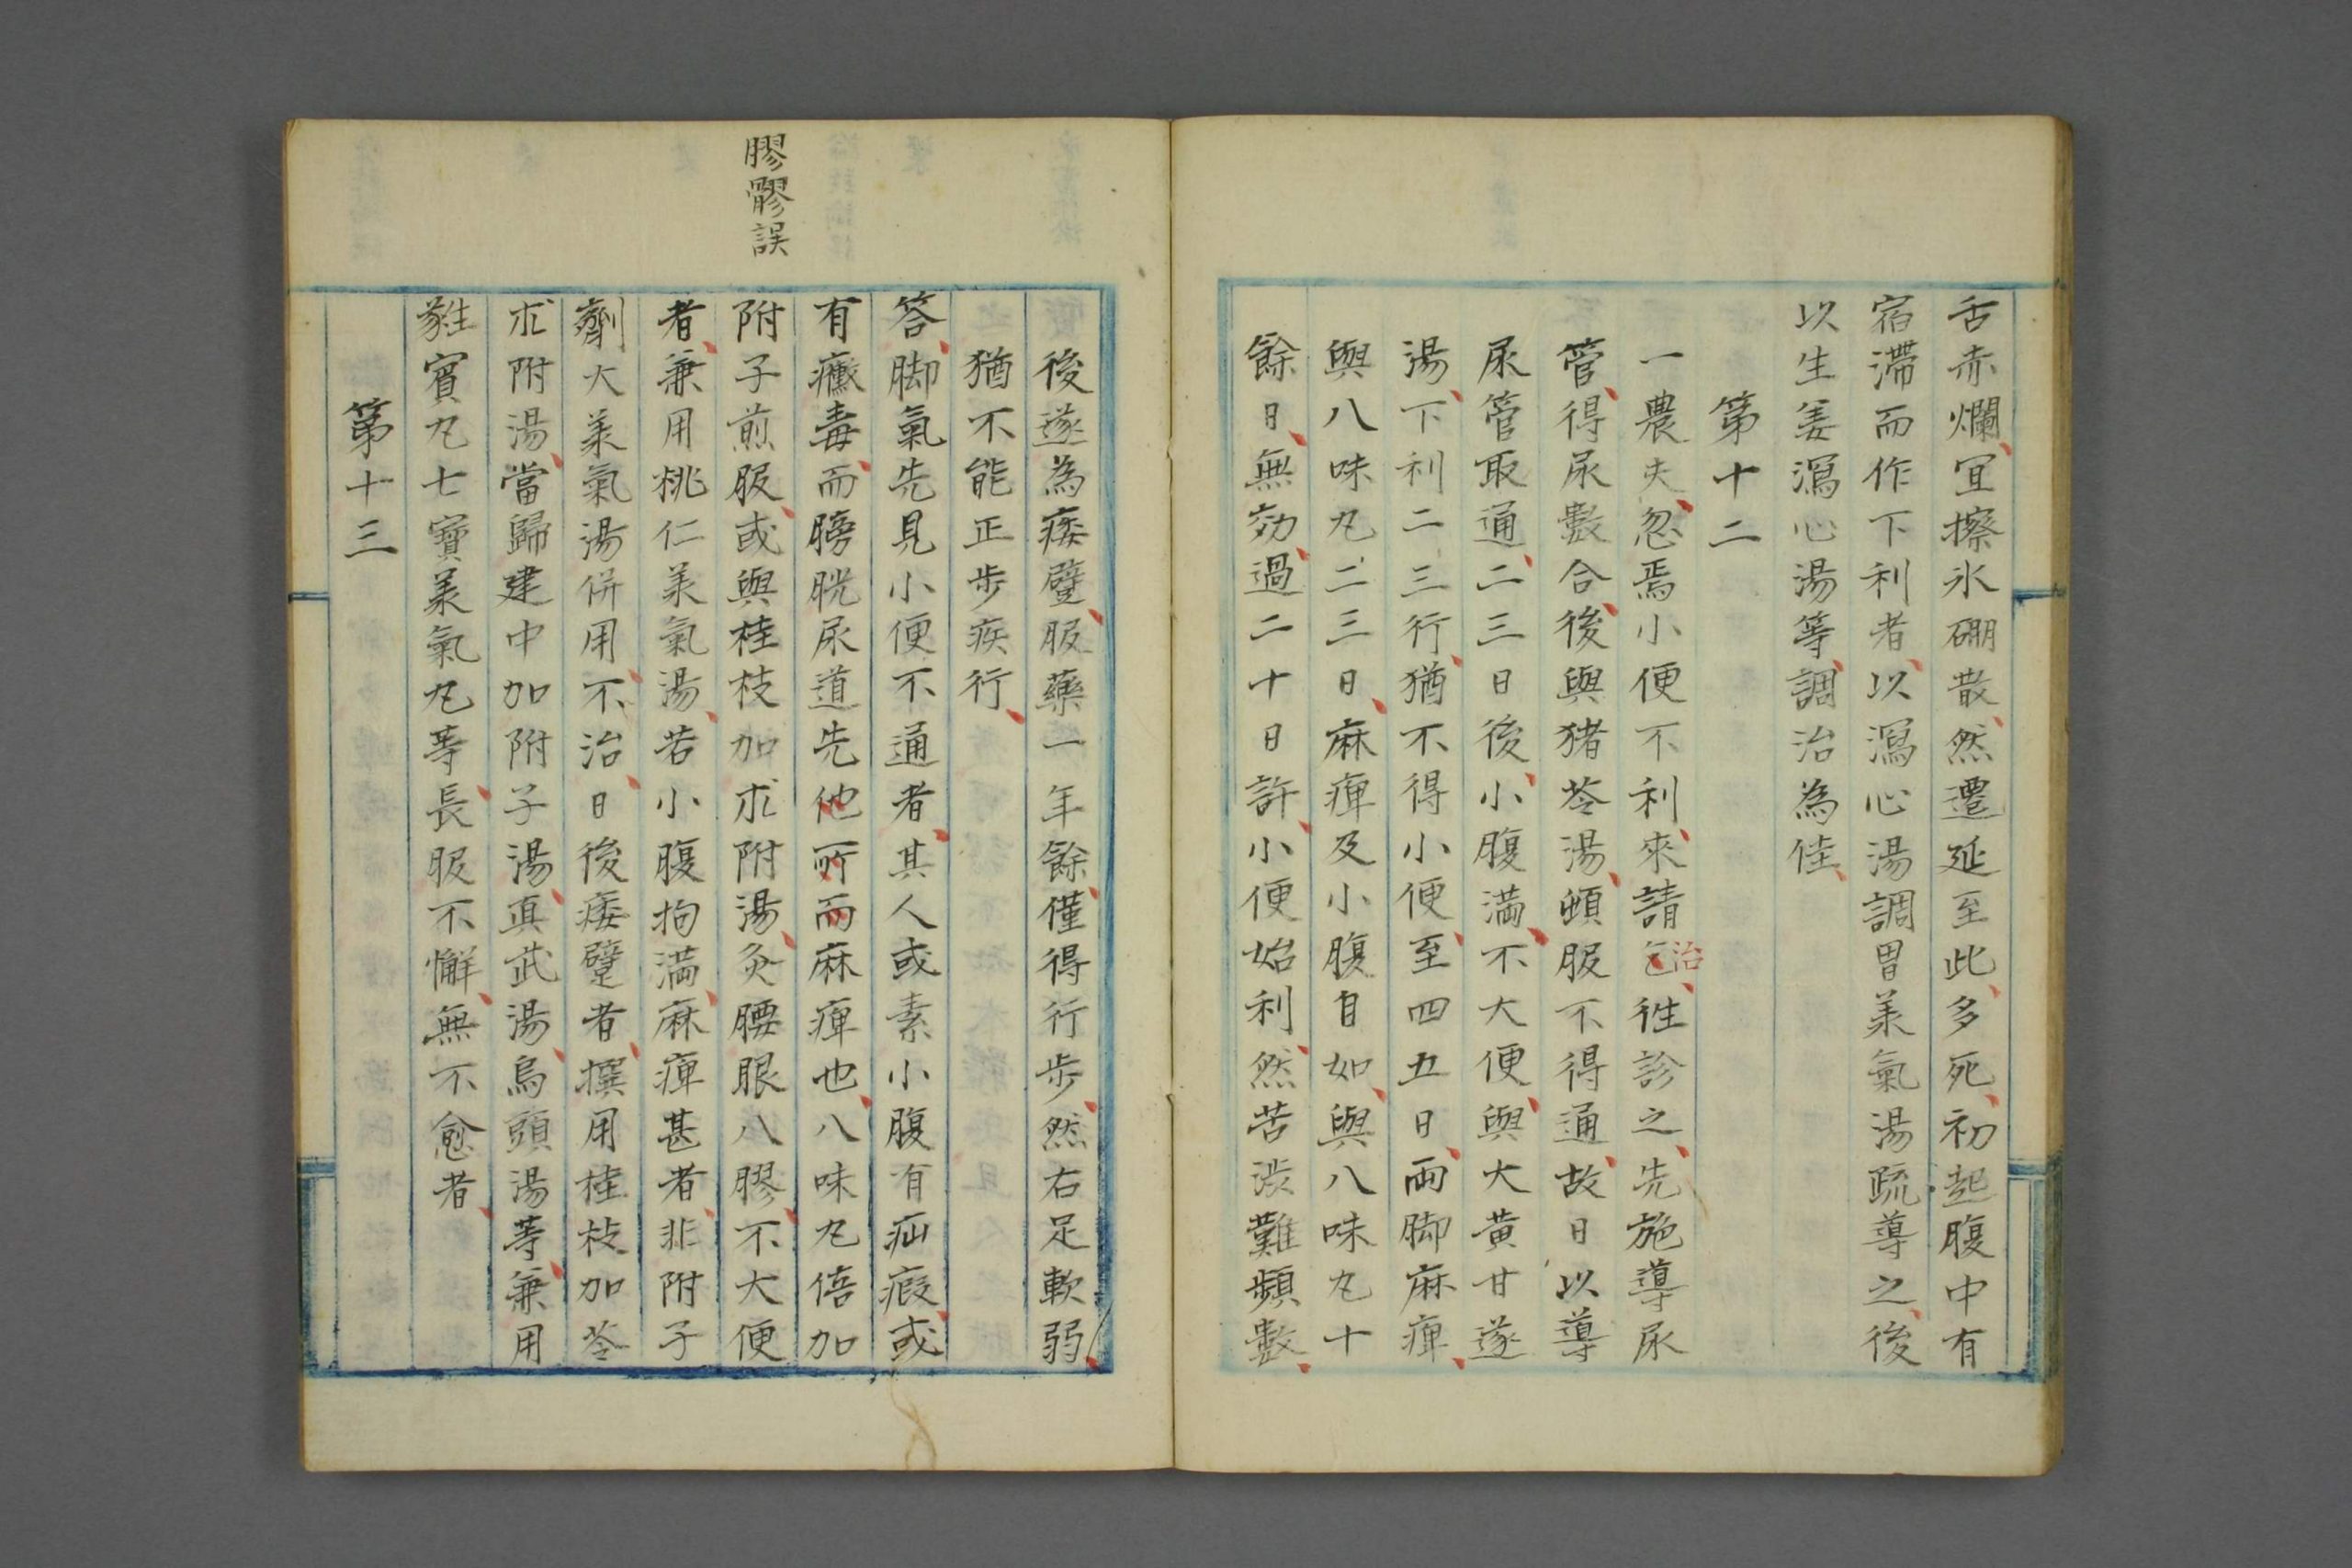 舌赤爛宜擦氷硼散然遷延至此多死初起腹中有
宿滞而作下利者以瀉心湯調胃美氣湯疏導之後
以生姜瀉心湯等調治為佳
第十二
一農夫忽焉小便不利來請乞治徃診之先施導尿
管得尿數合後與猪苓湯頓服不得通故日以導
尿管取通二三日後小腹満不大便與大黄甘遂
湯下利二三行猶不得小便至四五日両脚麻痺
與八味丸二三日麻痺及小腹自如與八味丸十
餘日無効過二十日許小便始利然苦渋難頻數
膠髎誤
後遂為痿躄服藥一年餘僅得行歩然右足軟弱
猶不能正歩疾行
答脚氣先見小便不通者其人或素小腹有疝瘕或
有癥毒而膀胱尿道先他所而麻痺也八味丸倍加
附子煎服或與桂枝加朮附湯灸腰眼八膠不大便
者兼用桃仁美氣湯若小腹拘満麻痺甚者非附子
劑大美氣湯併用不治日後痿躄者撰用桂枝加苓
朮附湯當歸建中加附子湯真武湯烏頭湯等兼用
賓丸七寶美氣丸等長服不懈無不愈者
第十三